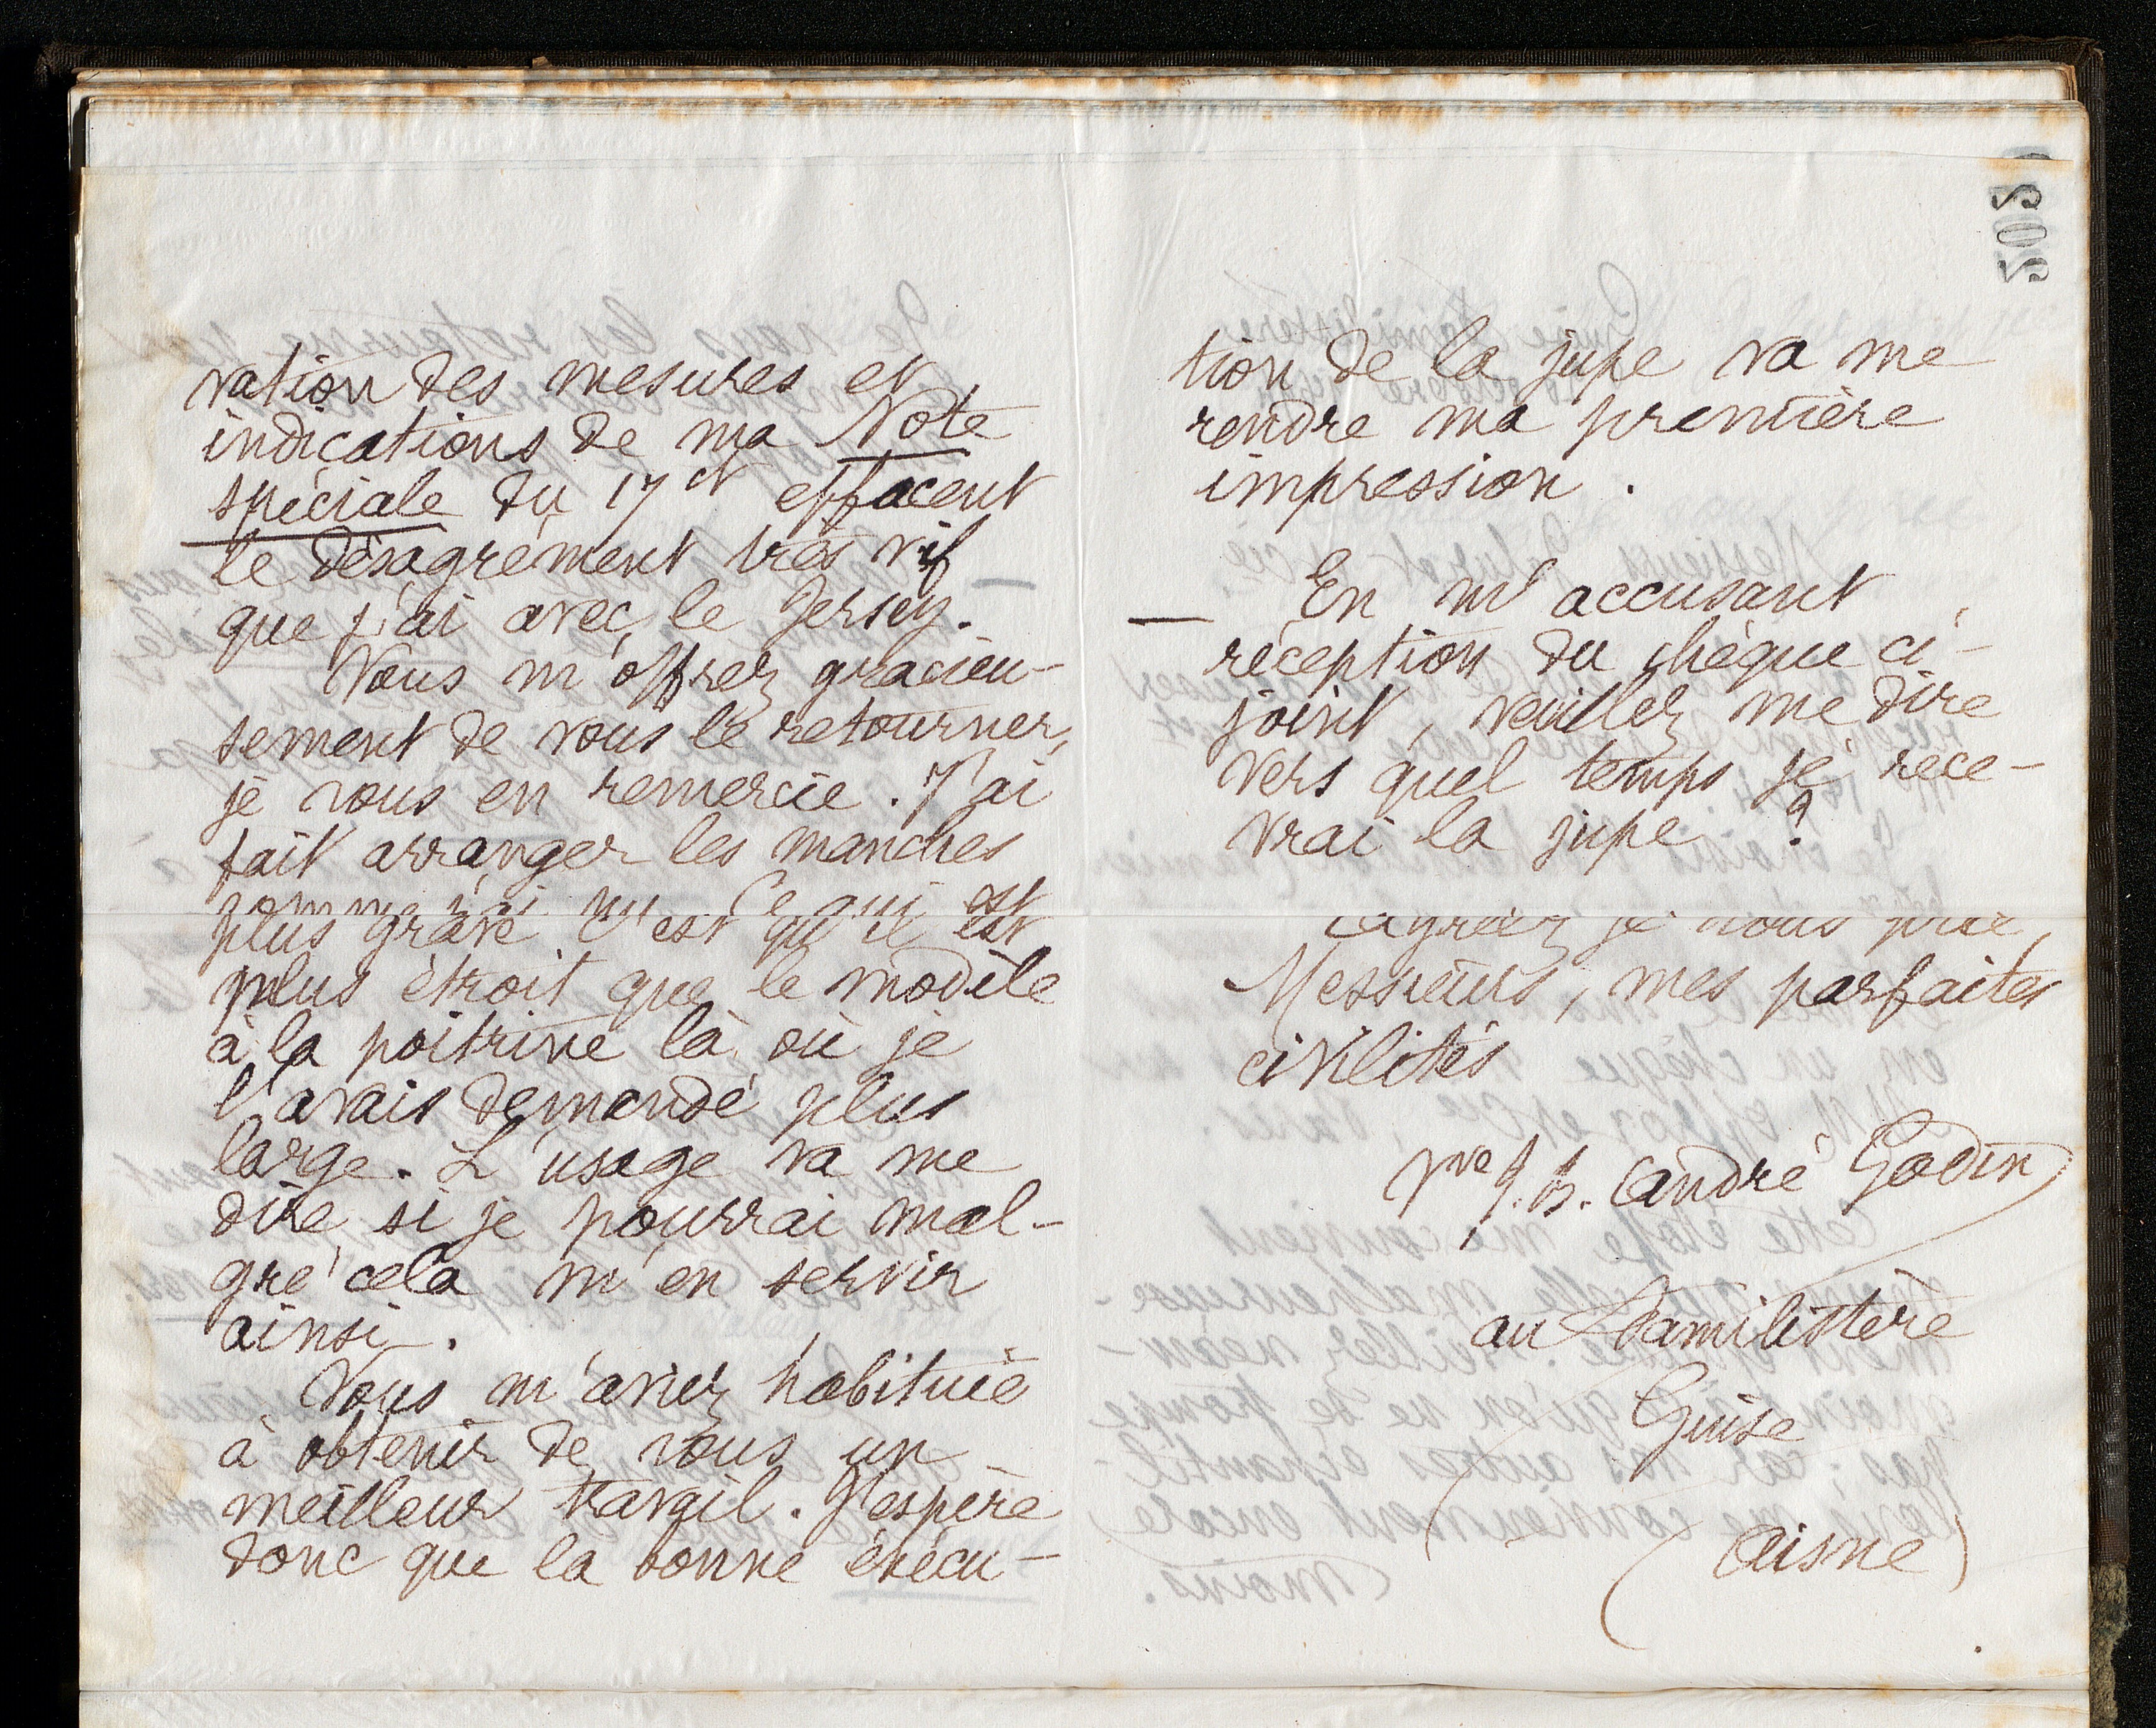 vation des mesures et
indications de ma Note
spéciale du 17 ct effacent
le désagrément très vif
que j'ai avec le Jersey.
Vous m'offrez gracieu-
sement de vous le retourner,
je vous en remercie. J'ai
fait arranger les manches
comme j'ai pu. Ce qui est
plus grave c'est qu'il est
plus étroit que le modèle
à la poitrine là où je
l'avais demandé plus
large. L'usage va me
dire si je pourrai mal-
gré cela m'en servir
ainsi.
Vous m'aviez habituée
à obtenir de vous un
meilleur travail. J'espère
donc que la bonne exécu-
tion de la jupe va me
rendre ma première
impression.
— En m'accusant
réception du chèque ci-
joint, veuillez me dire
vers quel temps je rece-
vrai la jupe ?
Agréez je vous prie,
Messieurs, mes parfaites
civilités
Vve J. B. André Godin
au Familistère
Guise
(Aisne)
505